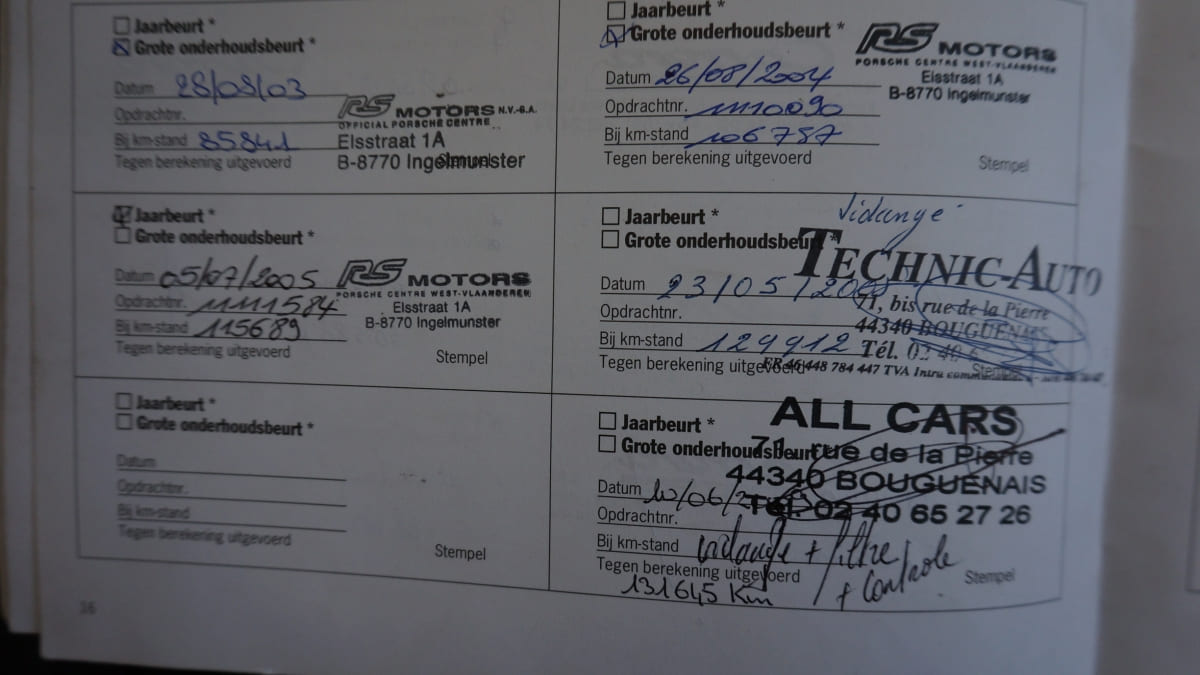 Jaarbeurt *
Grote onderhoudsbeurt *
Datum 28/08/03
Opdrachtnr.
Bij km-stand 85841
Tegen berekening uitgevoerd
RS MOTORS N.V.-S.A.
OFFICIAL PORSCHE CENTRE
Elsstraat 1A
B-8770 Ingelmunster
Stempel
Jaarbeurt *
Grote onderhoudsbeurt *
Datum 26/08/2004
Opdrachtnr. 1110090
Bij km-stand 106787
Tegen berekening uitgevoerd
RS MOTORS
PORSCHE CENTRE WEST-VLAANDEREN
Elsstraat 1A
B-8770 Ingelmunster
Stempel
Jaarbeurt *
Grote onderhoudsbeurt *
Datum 05/07/2005
Opdrachtnr. 1111584
Bij km-stand 115689
Tegen berekening uitgevoerd
RS MOTORS
PORSCHE CENTRE WEST-VLAANDEREN
Elsstraat 1A
B-8770 Ingelmunster
Stempel
Vidange
Jaarbeurt *
Grote onderhoudsbeurt *
Datum 23/05/
Opdrachtnr.
Bij km-stand 129912
Tegen berekening uitgevoerd
TECHNIC-AUTO
71, bis rue de la Pierre
44340 BOUGUENAIS
Tél. 02 40
448 784 447 TVA Intra
Stempel
Jaarbeurt *
Grote onderhoudsbeurt *
Datum
Opdrachtnr.
Bij km-stand
Tegen berekening uitgevoerd
Stempel
Jaarbeurt *
Grote onderhoudsbeurt
Datum 10/06/
Opdrachtnr.
Bij km-stand vidange + filtre
+ Controle
Tegen berekening uitgevoerd
131645 Km
ALL CARS
71 rue de la Pierre
44340 BOUGUENAIS
Tél. 02 40 65 27 26
Stempel
16